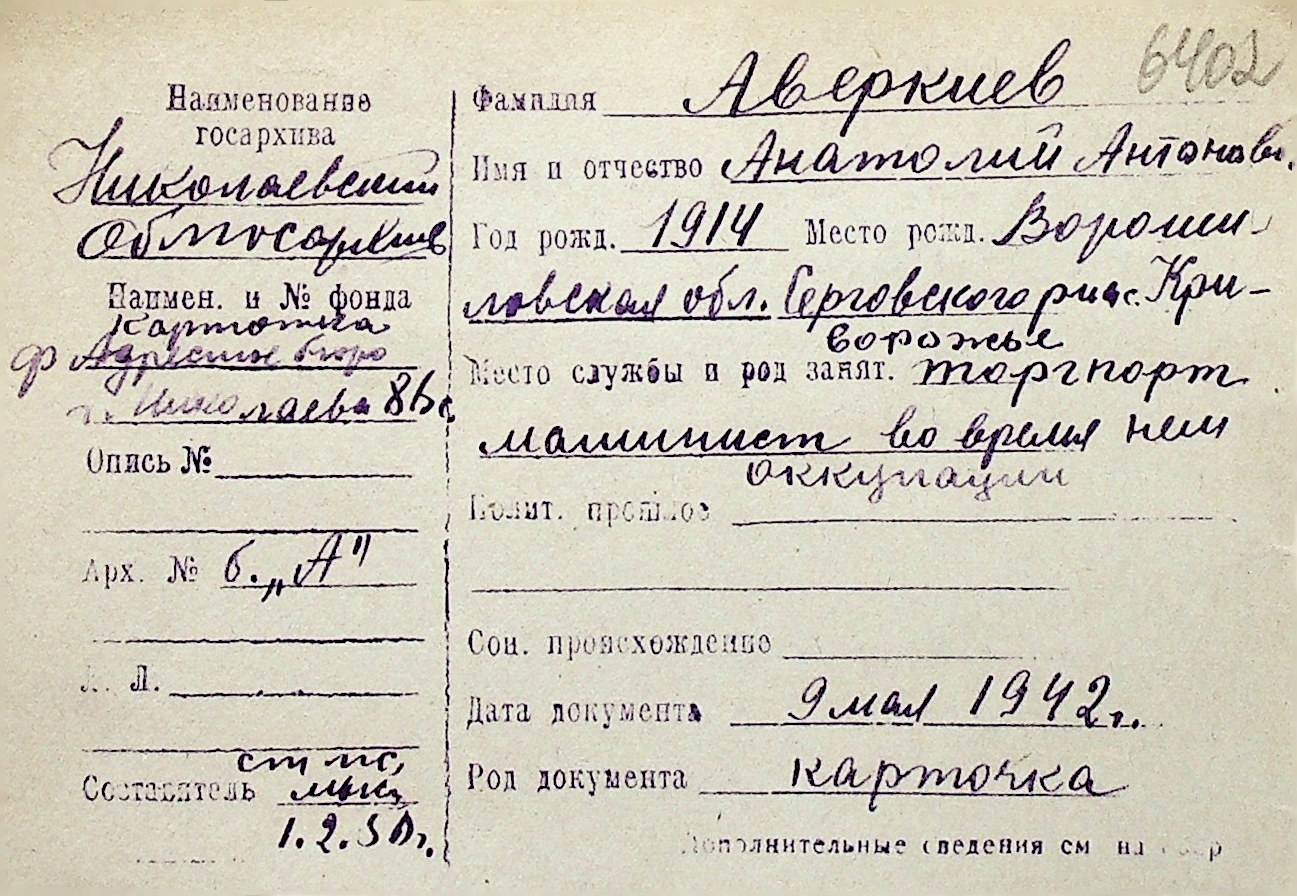 6402
Наименование
госархива
Николаевский
Облгосархив
Наимен. и № фонда
Картотека
ф Адресное бюро
г. Николаева
Опись №
Арх. № б. „А"
Л. Л.
Составитель
1.2.50г.
Фамилия Аверкиев
Имя и отчество Анатолий Антонов.
Год рожд. 1914 Место рожд. Вороши-
ловская обл. Серговского с. Кри-
ворожье
Место службы и род занят. торгпорт
машинист во время нем
оккупации
Полит. прошлое
Соц. происхождение
Дата документа 9 мая 1942г.
Род документа карточка
Дополнительные сведения см на обор